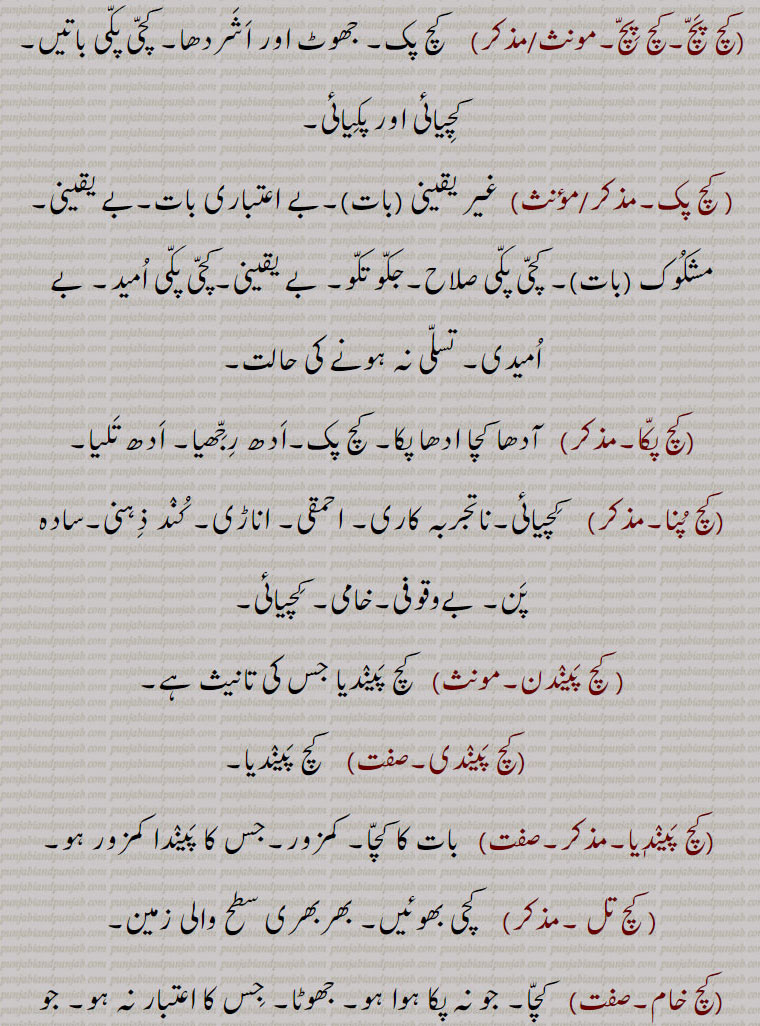 (کچ پَچّ۔کچ پِچّ۔مونث/مذکر) کچ پک۔ جھوٹ اور اَشَردھا۔ کچّی پکّی باتیں۔
کچِیائی اور پکیائی۔
( کچ پک۔مذکر/مؤنث) غیر یقینی (بات)۔بے اعتباری بات۔بے یقینی۔
مشکُوک (بات)۔ کچّی پکّی صلاح۔جکّو تکّو۔ بے یقینی۔کچّی پکّی اُمید۔ بے
اُمیدی۔ تسلّی نہ ہونے کی حالت۔
(کچ پکّا۔مذکر) آدھا کچا ادھا پکا۔ کچ پک۔اَدھ رِجِّھیا۔ اَدھ تَلیا۔
(کچ پُنا۔مذکر) کَچیائی۔ناتجربہ کاری۔ احمقی۔ اناڑی۔ کُنْد ذِہنی۔سادہ
پَن۔ بےوقوفی۔خامی۔ کَچیائی۔
( کچ پَینْدن۔مونث) کچ پَینْدیا جس کی تانیث ہے۔
(کچ پَینْدی۔صفت) کچ پَینْدیا۔
(کچ پَینْدیا۔مذکر۔صفت) بات کا کچّا۔ کمزور۔جس کا پَینْدا کمزور ہو۔
( کچ تل ۔مذکر) کچی بھوئیں۔ بھربھری سطح والی زمین۔
(کچ خام۔صفت) کچّا۔ جو نہ پکا ہوا ہو۔ جھوٹا۔ جِس کا اعتبار نہ ہو۔ جو